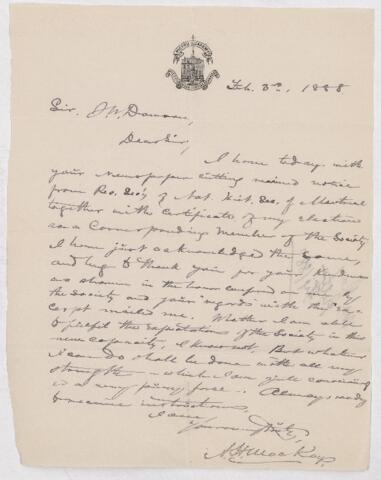 Feb. 3rd, 1888
Sir J W Dawson,
Dear Sir,
I have today with
your Newspaper cutting received notice
from Rec. Sec'y of Nat. Hist. Soc. of Montreal
together with certificate of my election
as a Corresponding Member of the Society
I have just acknowledged the same,
and beg to thank you for your kindness
as shown in the honor conferred by
the Society and your regards with the
mailed me. Whether I am able
to fulfil the expectations of the Society in this
new capacity, I know not. But whatever
I can do shall be done with all my
strength - which I am quite conscious
is a very puny force. Always ready
to receive instructions,
I am
Yours very truly,
A H MacKay.